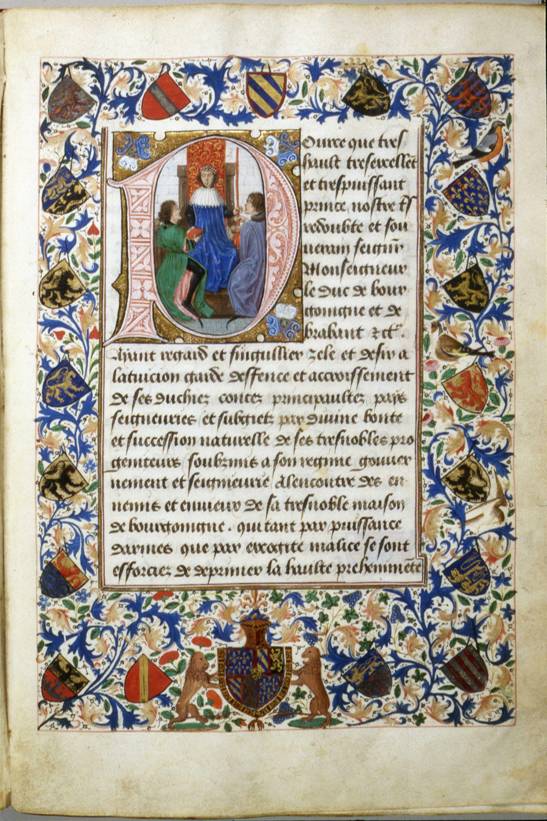 Pource que tres
hault tresexcellēt
et trespuissant
prince nostre tˢ
redoubte et sou
uerain seigneur
Monseigneur
le duc de bour
goingne et de
brabant ⁊ctˀ.
Ayant regard et singullier zele et desir a
la tuicion garde deffence et accroissement
de ses duchiez contez principaultez pays
seigneuries et subgetz par diuine bonte
et succession naturelle de ses tresnobles pro
geniteurs soubzmis a son regime gouuer
nement et seigneurie Alencontre des en
nemis et enuieux de sa tresnoble maison
de bourgoingne . qui tant par puissance
darmes que par exogite malice se sont
efforciez de deprimer la haulte prehemīete